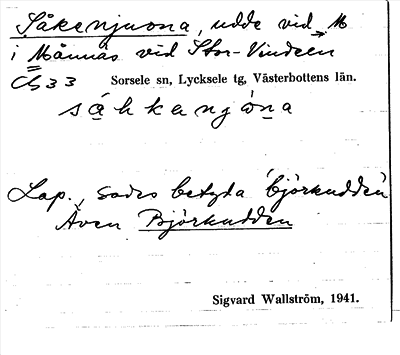 Såkenjuona, udde vid M
i Månnäs vid Stor-Vindeln
Cb33 Sorsele sn, Lycksele tg, Västerbottens län.
såhkangåna
Lap., sades betyda 'björkudden'
Även Björkudden
Sigvard Wallström, 1941.